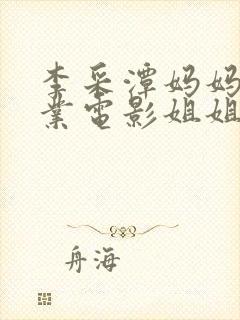 李采潭妈妈
業电影姐姐
舟海